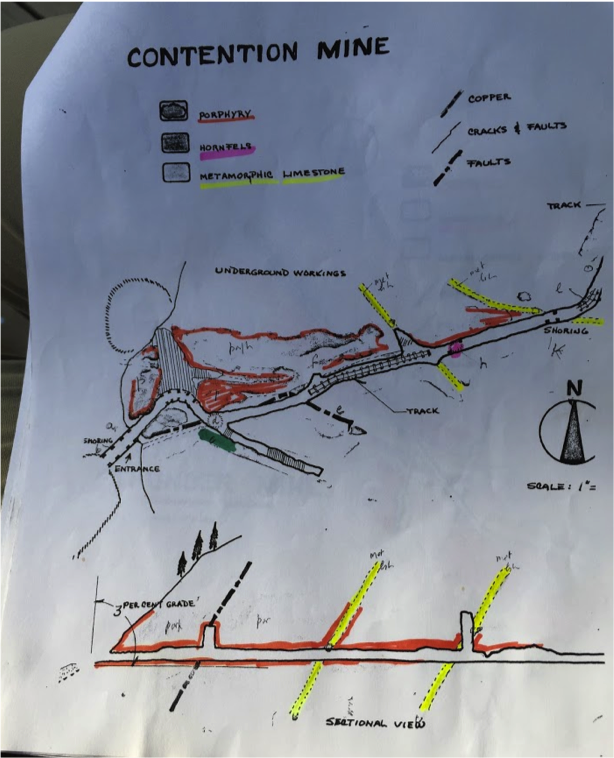 CONTENTION MINE
PORPHYRY
HORNFELS
METAMORPHIC LIMESTONE
COPPER
CRACKS & FAULTS
FAULTS
TRACK
UNDERGROUND WORKINGS
met
met
porph
SHORING
TRACK
SHORING
ENTRANCE
N
SCALE: 1"=
3 PER CENT GRADE
porph
por
met
met
SECTIONAL VIEW